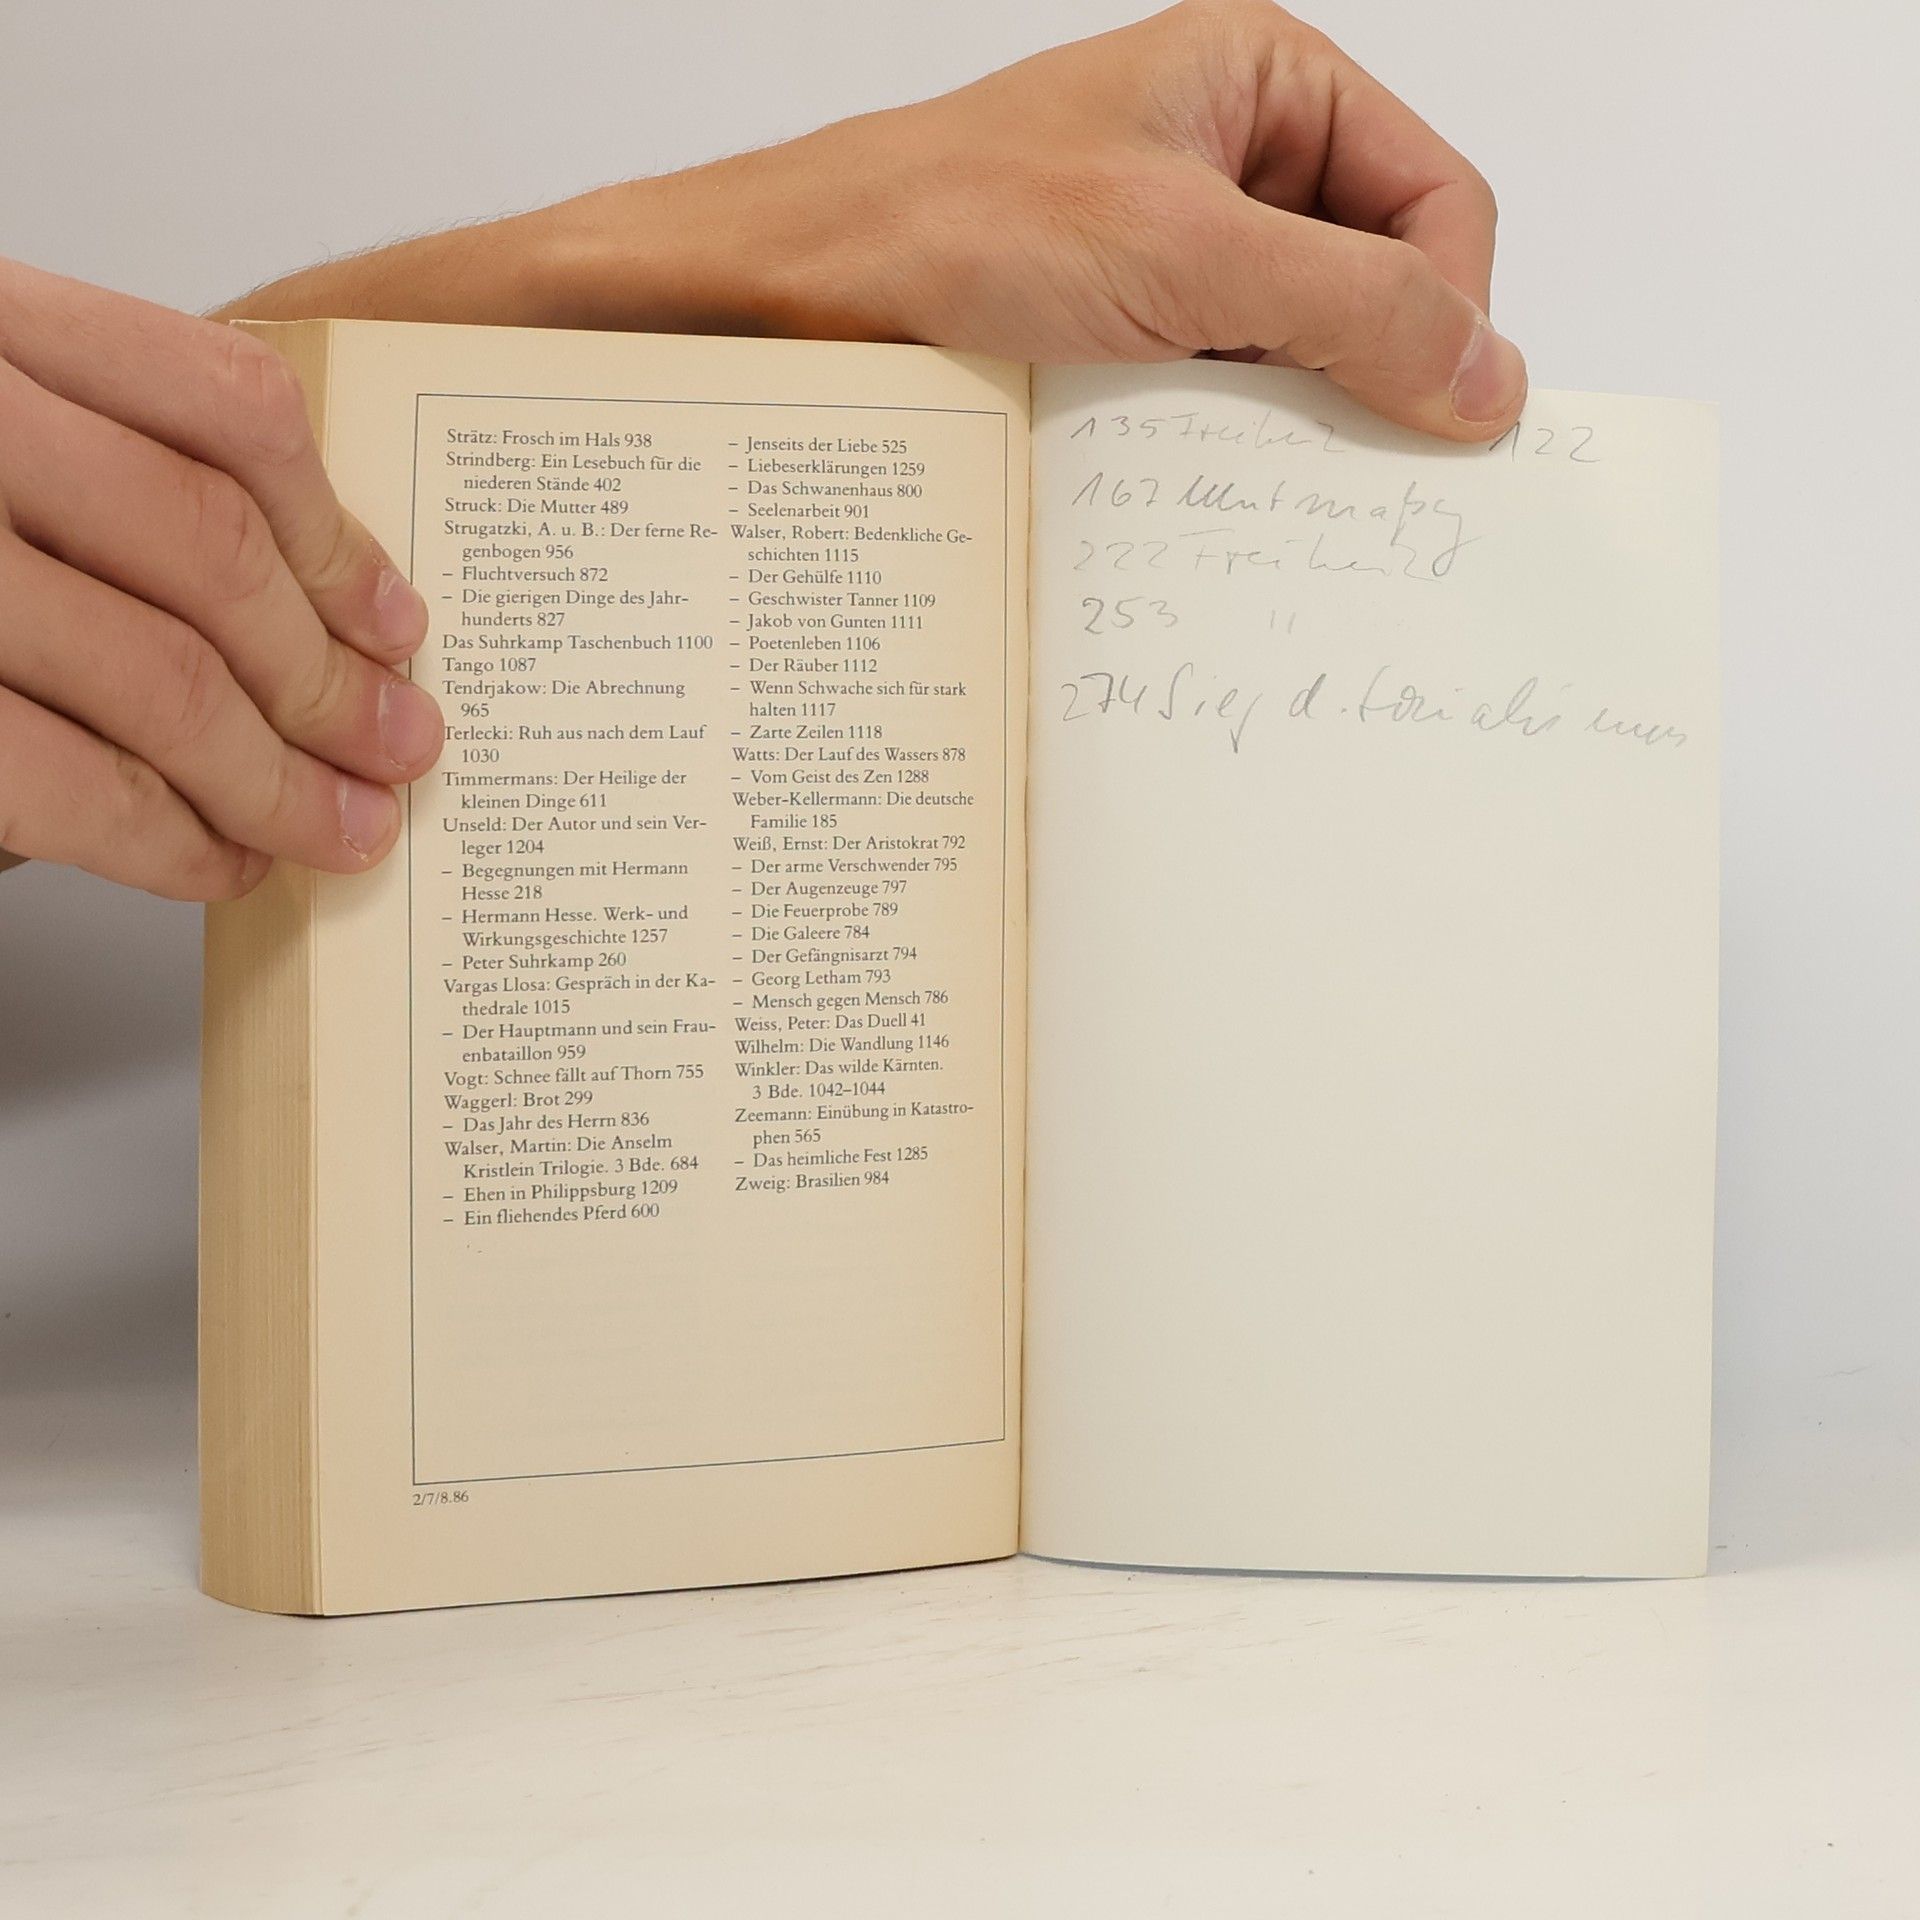 Strätz: Frosch im Hals 938
Strindberg: Ein Lesebuch für die
niederen Stände 402
Struck: Die Mutter 489
Strugatzki, A. u. B.: Der ferne Re-
genbogen 956
– Fluchtversuch 872
– Die gierigen Dinge des Jahr-
hunderts 827
Das Suhrkamp Taschenbuch 1100
Tango 1087
Tendrjakow: Die Abrechnung
965
Terlecki: Ruh aus nach dem Lauf
1030
Timmermans: Der Heilige der
kleinen Dinge 611
Unseld: Der Autor und sein Ver-
leger 1204
– Begegnungen mit Hermann
Hesse 218
– Hermann Hesse. Werk- und
Wirkungsgeschichte 1257
– Peter Suhrkamp 260
Vargas Llosa: Gespräch in der Ka-
thedrale 1015
– Der Hauptmann und sein Frau-
enbataillon 959
Vogt: Schnee fällt auf Thorn 755
Waggerl: Brot 299
– Das Jahr des Herrn 836
Walser, Martin: Die Anselm
Kristlein Trilogie. 3 Bde. 684
– Ehen in Philippsburg 1209
– Ein fliehendes Pferd 600
– Jenseits der Liebe 525
– Liebeserklärungen 1259
– Das Schwanenhaus 800
– Seelenarbeit 901
Walser, Robert: Bedenkliche Ge-
schichten 1115
– Der Gehülfe 1110
– Geschwister Tanner 1109
– Jakob von Gunten 1111
– Poetenleben 1106
– Der Räuber 1112
– Wenn Schwache sich für stark
halten 1117
– Zarte Zeilen 1118
Watts: Der Lauf des Wassers 878
– Vom Geist des Zen 1288
Weber-Kellermann: Die deutsche
Familie 185
Weiß, Ernst: Der Aristokrat 792
– Der arme Verschwender 795
– Der Augenzeuge 797
– Die Feuerprobe 789
– Die Galeere 784
– Der Gefängnisarzt 794
– Georg Letham 793
– Mensch gegen Mensch 786
Weiss, Peter: Das Duell 41
Wilhelm: Die Wandlung 1146
Winkler: Das wilde Kärnten.
3 Bde. 1042–1044
Zeemann: Einübung in Katastro-
phen 565
– Das heimliche Fest 1285
Zweig: Brasilien 984
2/7/8.86
135 Freiheit 122
167
222 Freiheit
253 "
274 Sieg d. Sozialismus